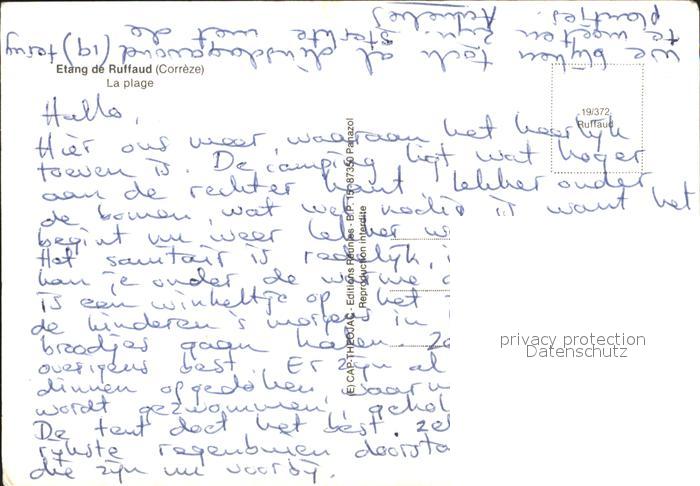 we blijken toch al dinsdagavond (19) terug
te moeten zijn. Sterkte met de
plantjes.
Etang de Ruffaud (Corrèze)
La plage
19/372
Ruffaud
Hallo,
Hier ons meer, waaraan het heerlijk
toeven is. De camping ligt wat hoger
aan de rechter kant, lekker onder
de bomen, wat wel nodig is want het
begint nu weer lekker
Het sanitair is redelijk,
kan je onder de
is een winkeltje op het
de kinderen 's morgens in
broodjes gaan halen.
overigens best. Er zijn al
dinnen opgedoken, waar
wordt gezwommen,
De tent doet het best
rijkste regenbuien
die zijn nu voorbij.
(E) CAP-THEOJAC - Editions Réunies - B.P. 15 - 87350 Panazol
Reproduction interdite
privacy protection
Datenschutz